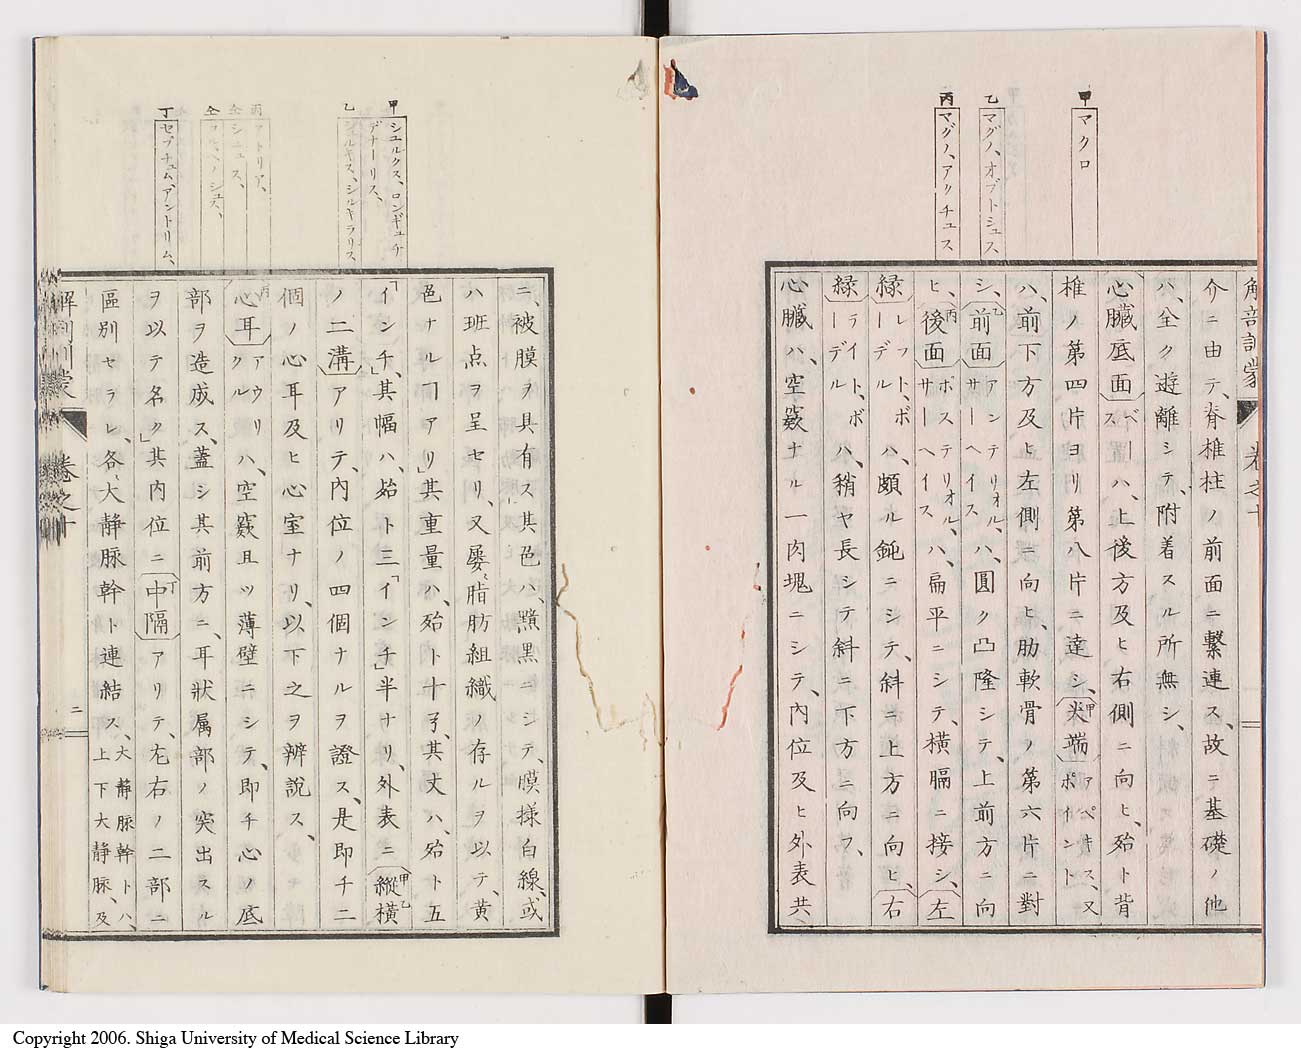 甲
マクロ
乙
マグノ、オブトシュス
丙
マグノ、アクチュス
解剖訓蒙
卷之十
介ニ由テ、脊椎柱ノ前面ニ繋連ス、故ニ基礎ノ他
ハ、全ク遊離シテ、附着スル所無シ、
心臓底面ベースハ、上後方及ヒ右側ニ向ヒ、殆ト背
椎ノ第四片ヨリ第八片ニ達シ、甲尖端アペキス、又ポイント
ハ、前下方及ヒ左側ニ向ヒ、肋軟骨ノ第六片ニ對
シ、乙前面アンテリオル、サーヘイスハ、圓ク凸隆シテ、上前方ニ向
ヒ、丙後面ポステリオル、サーヘイスハ、扁平ニシテ、横膈ニ接シ、左
緑レフト、ボーデルハ、頗ル鈍ニシテ、斜ニ上方ニ向ヒ、右
緑ライト、ボーデルハ、稍ヤ長シテ斜ニ下方ニ向フ、
心臓ハ、空竅ナル一肉塊ニシテ、内位及ヒ外表共、
甲
シュルクス、ロンギュチ
デナーリス、
乙
シュルキス、シルキラリス
丙
アトリア、
仝
シニュス、
仝
丁
セプチュム、アントリム、
ニ、被膜ヲ具有ス」其色ハ、黯黒ニシテ、膜様白線、或
ハ班点ヲ呈セリ、又屡〻脂肪組織ノ存ルヲ以テ、黄
色ナルヿアリ」其重量ハ、殆ト十弓、其丈ハ、殆ト五
「インチ」、其幅ハ、殆ト三「インチ」半ナリ、外表ニ甲縦乙横
ノ二溝アリテ、内位ノ四個ナルヲ證ス、是即チ二
個ノ心耳及ヒ心室ナリ、以下之ヲ辨説ス、
丙心耳アウリクルハ、空竅且ツ薄壁ニシテ、即チ心ノ底
部ヲ造成ス、蓋シ其前方ニ、耳狀属部ノ突出スル
ヲ以テ名ク」其内位ニ丁中隔アリテ、左右ノ二部ニ
區別セラレ、各、大静脉幹ト連結ス、大静脉幹トハ、上下大静脉、及
解剖訓蒙
卷之十
二
Copyright 2006. Shiga University of Medical Science Library